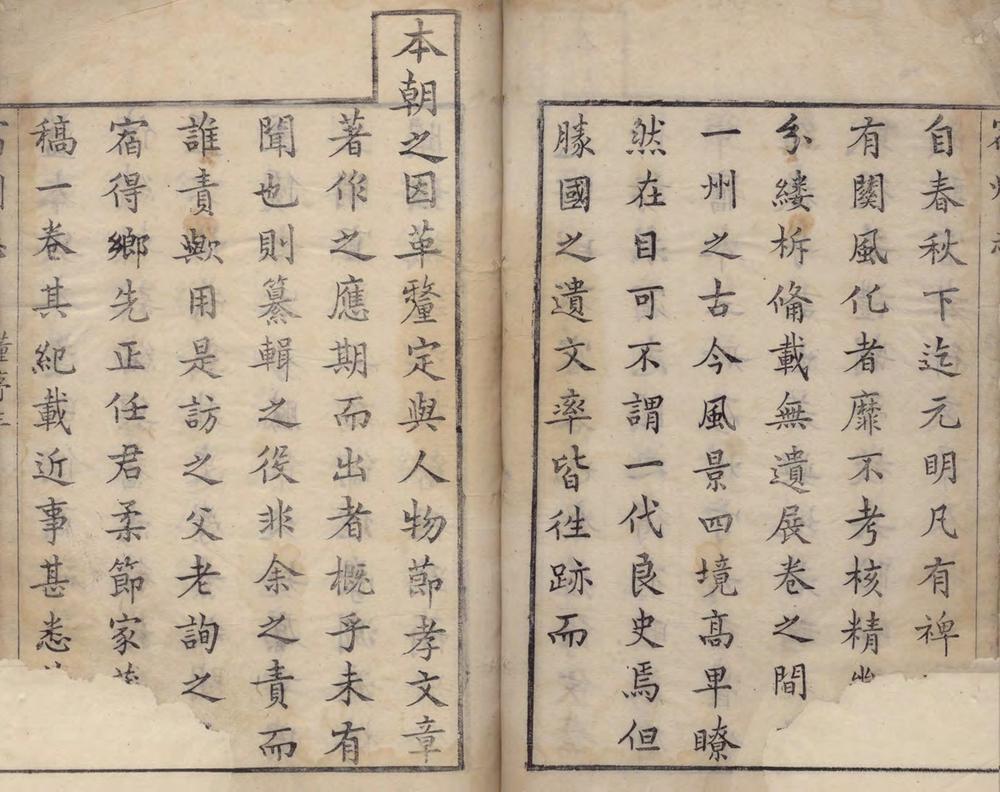 宿州志
自春秋下迄元明凡有裨
有關風化者靡不考核精
分縷柝脩載無遺展卷之間
一州之古今風景四境高卑瞭
然在目可不謂一代良史焉但
勝國之遺文率皆徃跡而
本朝之因革釐定與人物節孝文章
著作之應期而出者概乎未有
聞也則纂輯之役非余之責而
誰責歟用是訪之父老詢之
宿得鄉先正任君柔節家
稿一卷其紀載近事甚悉
董序